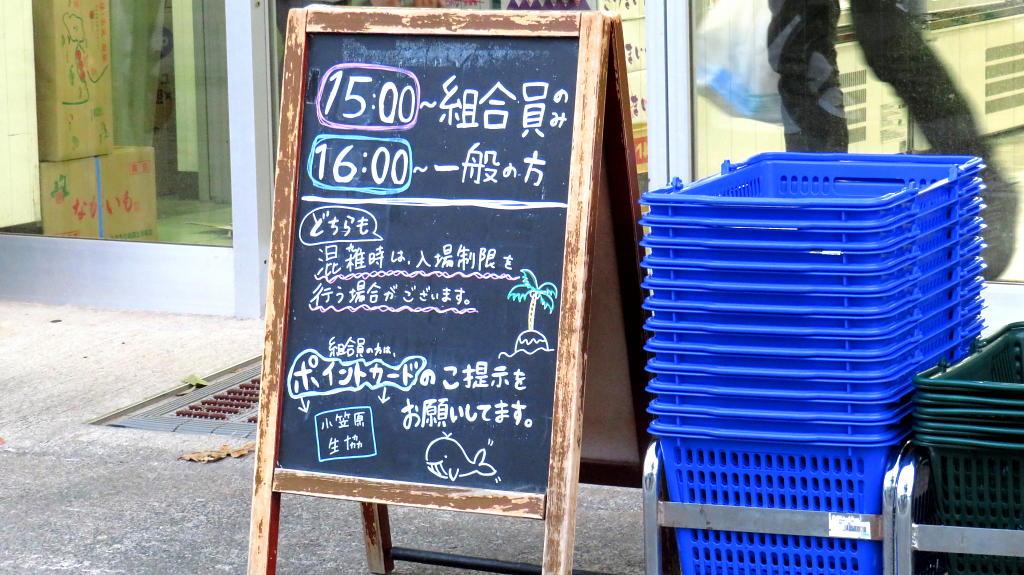 15:00～組合員のみ
16:00～一般の方
どちらも
混雑時は、入場制限を
行う場合がございます。
組合員の方は、
ポイントカードのご提示を
お願いしてます。
小笠原
生協
ながいも